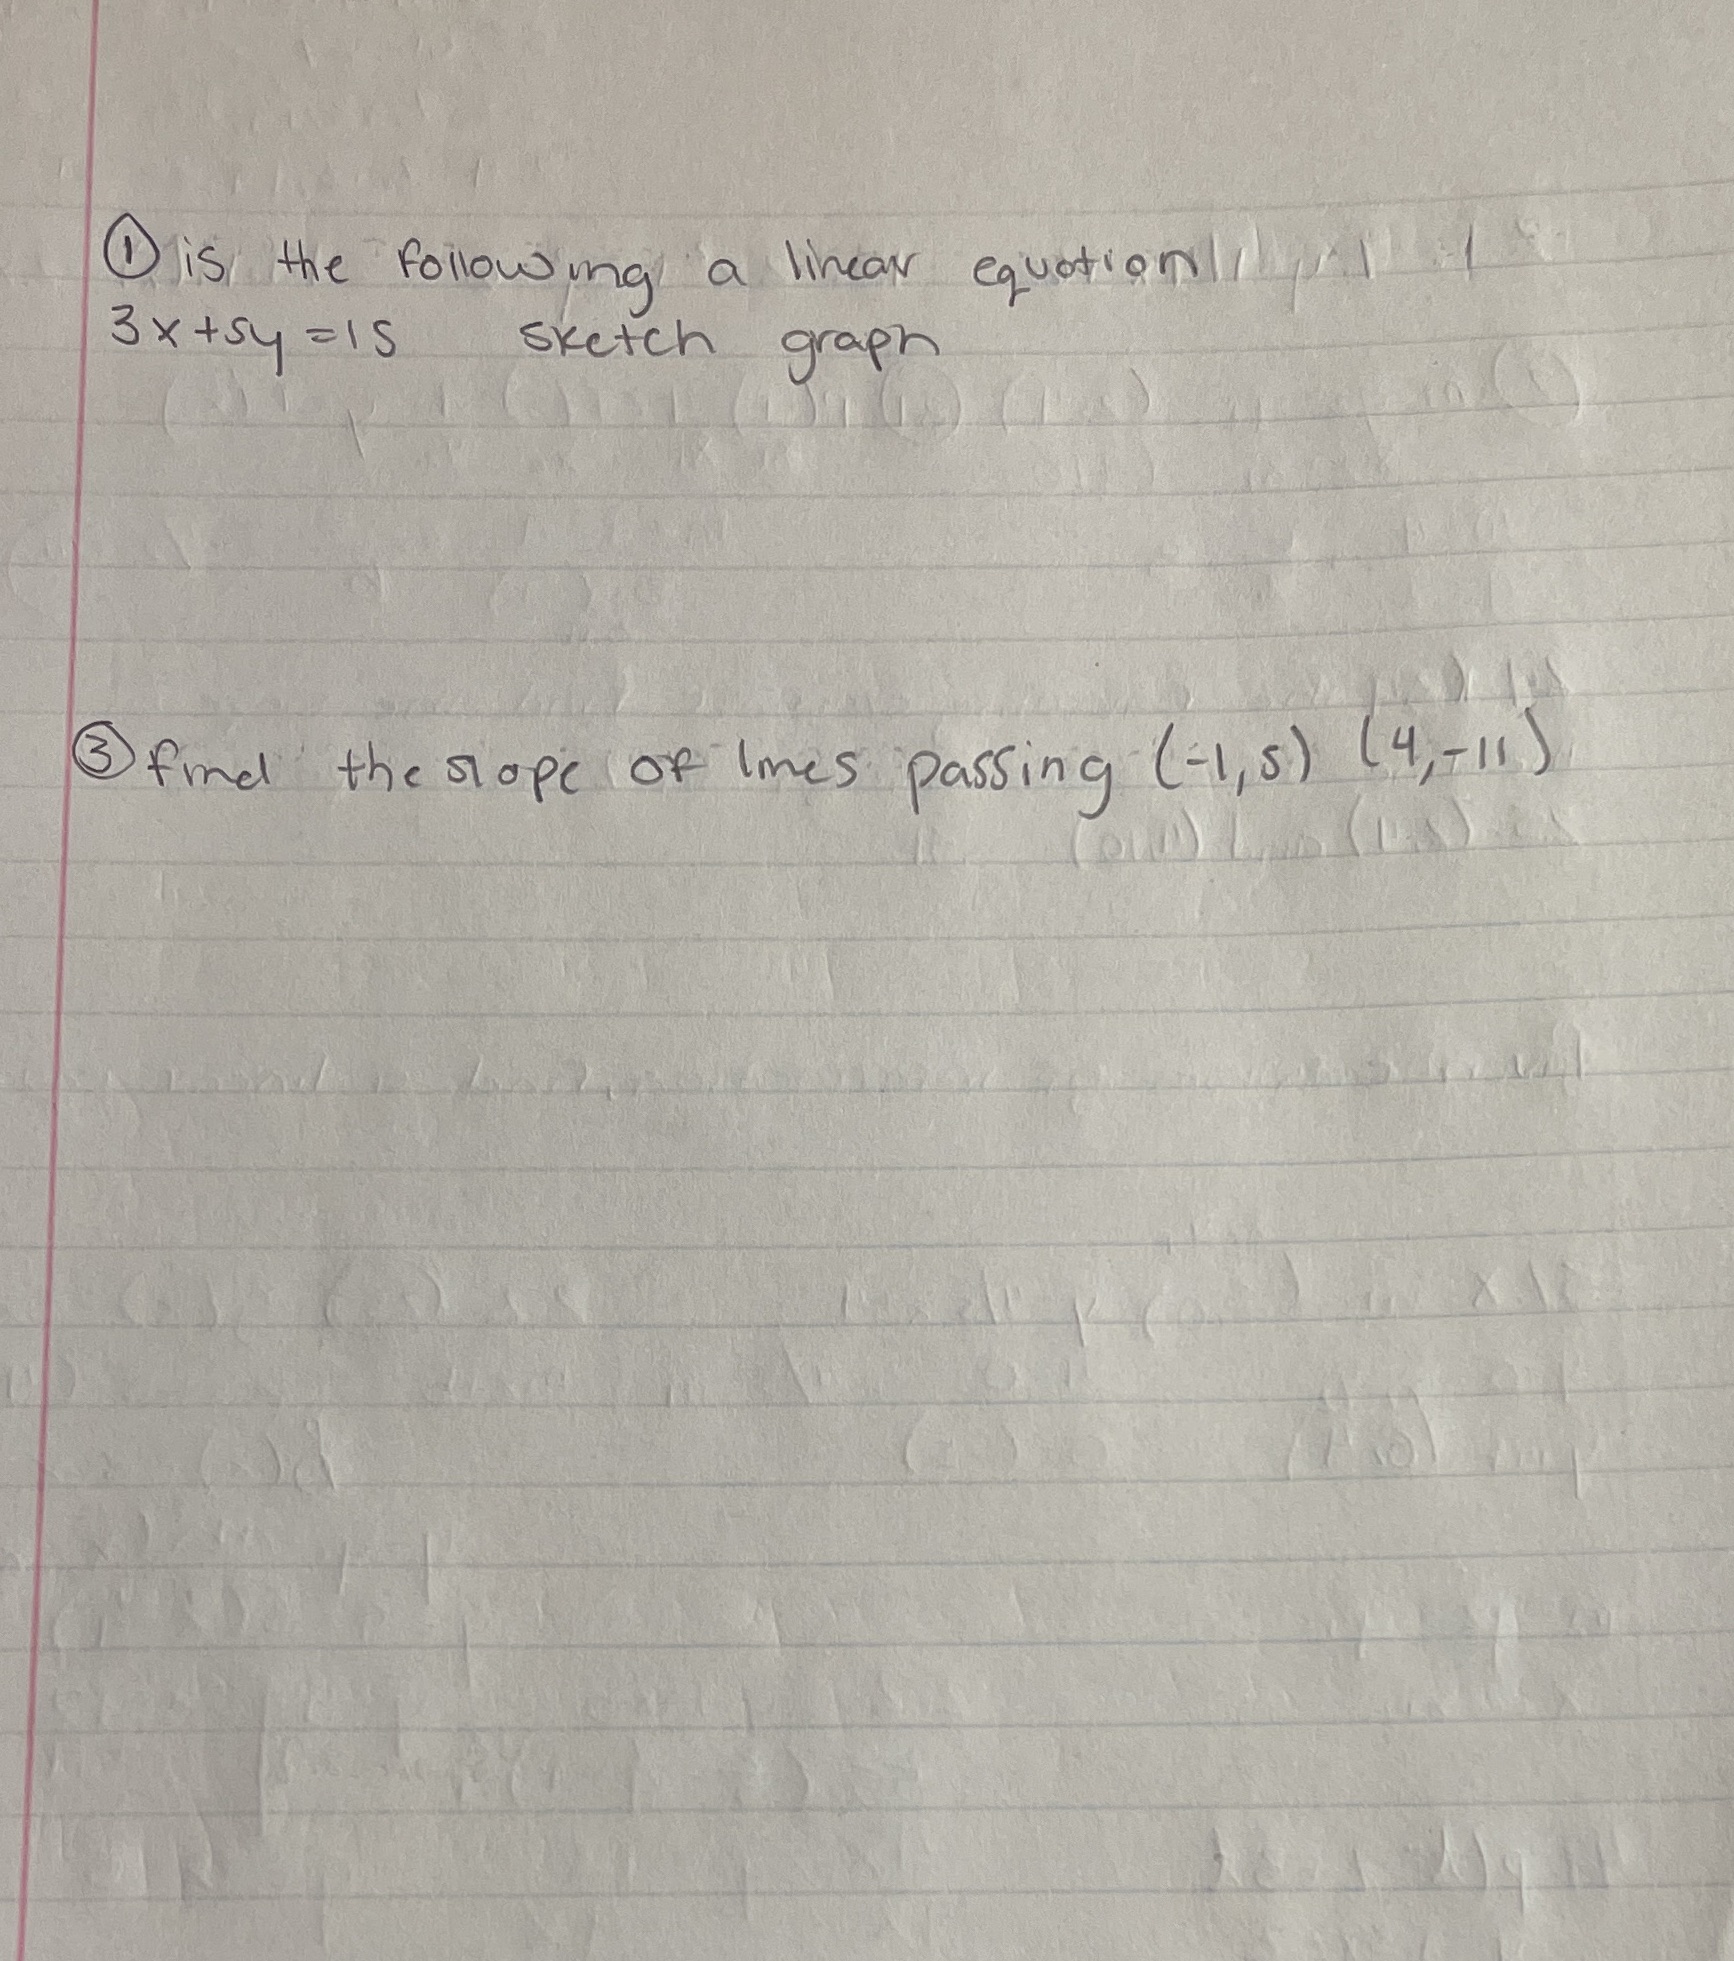 ① is the following a linear equation
3x+5y=15 sketch graph
③ find the slope of lines passing (-1,5) (4,-11)